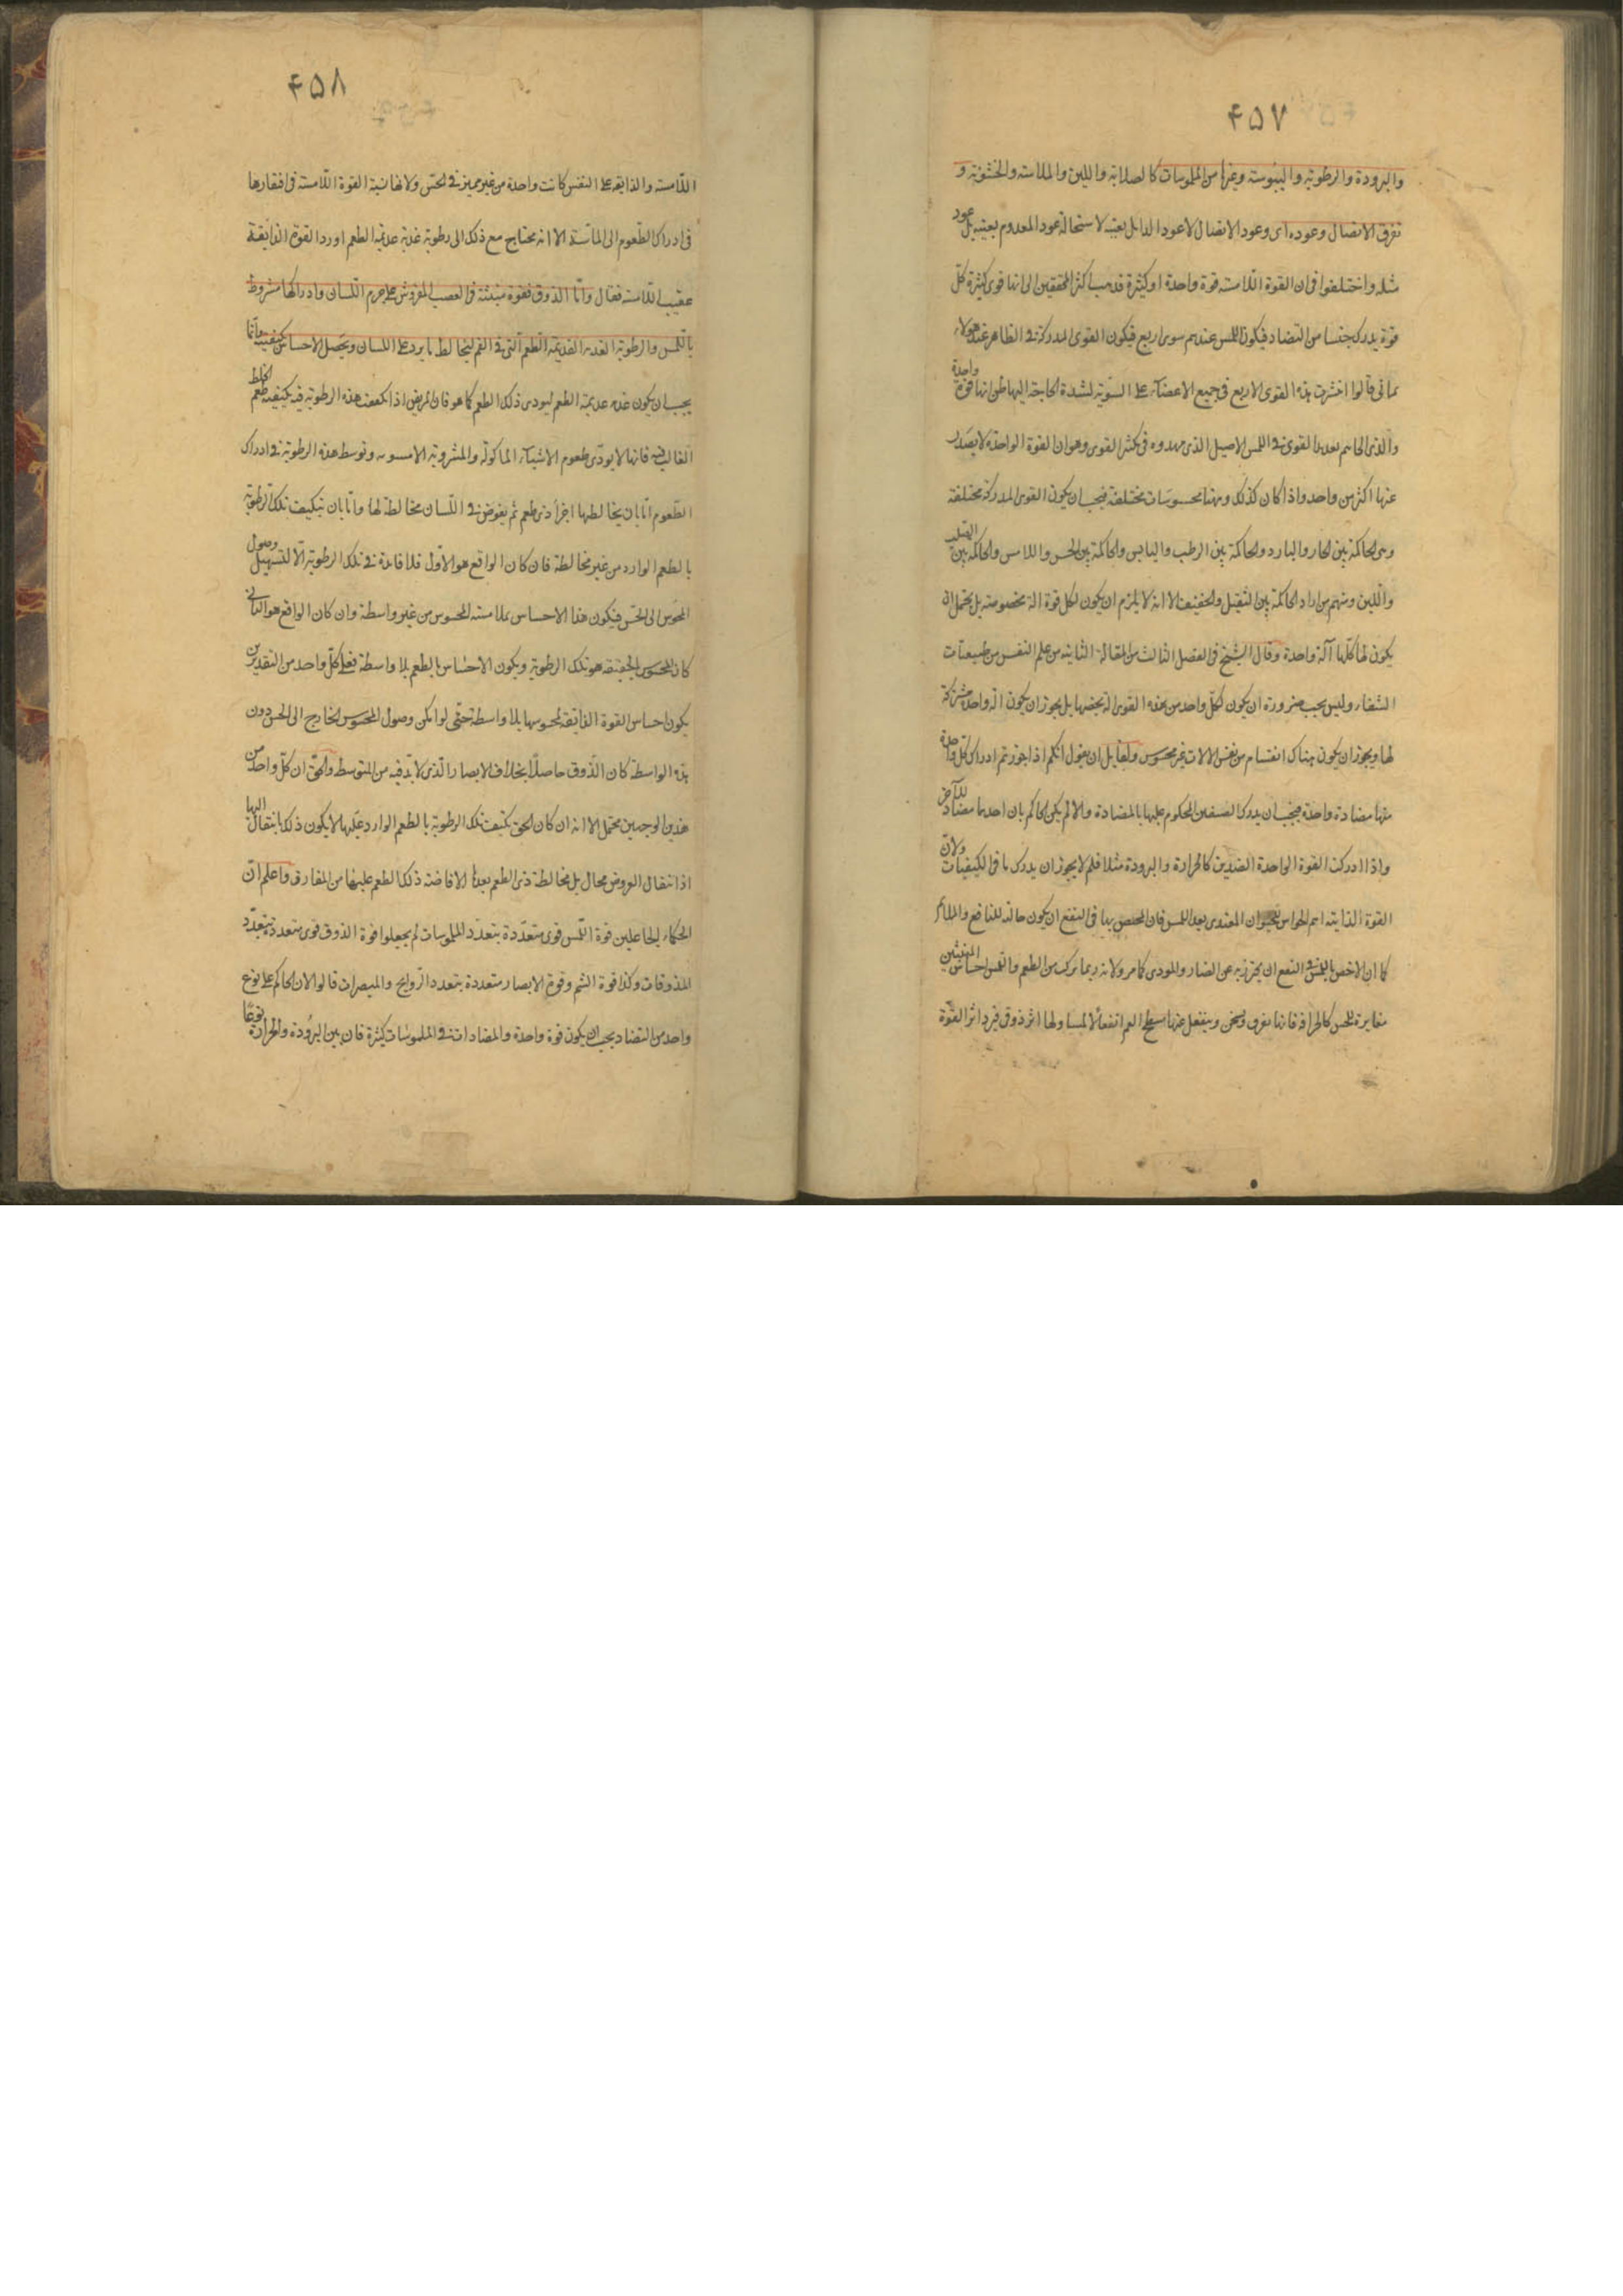 ۴۵۷
والبرودة والرطوبة واليبوسة وغيرها من الملموسات كالصلابة واللين والملاسة والخشونة و
تفرق الاتصال وعوده اى وعود الاتصال لا عود الزايل بعينه لاستحالة عود المعدوم بعينه بل عود
مثله واختلفوا فى ان القوة اللامسة قوة واحدة او كثيرة فذهب اكثر المحققين الى انها قوى كثيرة كل
قوة يدرك جنسا من التضاد فيكون اللمس عندهم قوى اربع فيكون القوى المدركة فى الظاهر عند هؤلاء
ثمانى قالوا انتشرت هذه القوى الاربع فى جميع الاعضاء على السوية لشدة الحاجة اليها ظن انها قوة واحدة
والذى الجاهم بعدد القوى فى اللمس الاصل الذى مهدوه فى تكثر القوى وهو ان القوة الواحدة لا يصدر
عنها اكثر من واحد واذا كان كذلك وههنا محسوسات مختلفة فيجب ان يكون القوى المدركة مختلفة
وهى الحاكمة بين الحار والبارد والحاكمة بين الرطب واليابس والحاكمة بين الخشن واللامس والحاكمة بين الصلب
واللين ومنهم من زاد الحاكمة بين الثقيل والخفيف الا انه لا يلزم ان يكون لكل قوة آلة مخصوصة بل يحتمل ان
يكون لها كلها آلة واحدة وقال الشيخ فى الفصل الثالث من المقالة الثانية من علم النفس من طبيعيات
الشفاء وليس يجب ضرورة ان يكون لكل واحد من هذه القوى آلة يخصها بل يجوز ان يكون آلة واحدة مشتركة
لها ويجوز ان يكون هناك انقسام من نفس الآلات غير محسوس ولقايل ان يقول انكم اذا جوزتم ادراك كل واحدة
منها مضادة واحدة فيجب ان يدرك الصنفين المحكوم عليهما بالمضادة والا لم يكن الحاكم بان احدهما مضاد للآخر
واذا ادركت القوة الواحدة الضدين كالحرارة والبرودة مثلا فلم لا يجوز ان يدرك باقى الكيفيات ولان
القوة الذايقة اهم الحواس للحيوان المغتذى بعد اللمس فان المختص بها فى النفع ان يكون جالبة للنافع والملائم
كما ان الاخص باللمس فى النفع ان يحترز به عن الضار والموذى كما مر ولانه ربما تركب من الطعم واللمس احساس
مغايرة للحس كالحرافة فانها يفرق ويسخن وينفعل عنها سطح الفم انفعالا لمسيا ولها اثر ذوقى فيرد اثر القوة
۴۵۸
اللامسة والذايقة على النفس كاثر واحد من غير تميز فى الحس ولانها تشبه القوة اللامسة فى افتقارها
فى ادراك الطعوم الى المماسة الا انه يحتاج مع ذلك الى رطوبة عذبة عديمة الطعم اورد القوة الذايقة
عقيب اللامسة فقال واما الذوق فقوة منبثة فى العصب المفروش على جرم اللسان وادراكها مشروط
باللمس والرطوبة العذبة العديمة الطعم التى فى الفم ليخالط ما يرد على اللسان ويحصل الاحساس بكيفيته وانما
يجب ان يكون عذبة عديمة الطعم ليودى ذلك الطعم كما هو فان المريض اذا تكيفت هذه الرطوبة فيه بكيفية طعم الخلط
الغالب فيه فانها لا يودى طعوم الاشياء الماكولة والمشروبة الا مشوبة وتوسط هذه الرطوبة فى ادراك
الطعوم اما بان يخالطها اجزاء ذى طعم ثم يغوص فى اللسان مخالطة لها واما بان يتكيف تلك الرطوبة
بالطعم الوارد من غير مخالطة فان كان الواقع هو الاول فلا فائدة فى تلك الرطوبة الا لتسهيل وصول
المحسوس الى الحس فيكون هذا الاحساس بملامسة المحسوس من غير واسطة وان كان الواقع هو الثانى
كان المحسوس بالحقيقة هو تلك الرطوبة ويكون الاحساس بالطعم بلا واسطة فعلى كل واحد من التقديرين
يكون احساس القوة الذايقة لمحسوسها بلا واسطة حتى لو امكن وصول المحسوس الخارج الى الحس دون
هذه الواسطة كان الذوق حاصلا بخلاف الابصار الذى لا بد فيه من المتوسط والحق ان كل واحد من
هذين الوجهين محتمل الا انه ان كان الحق تكيف تلك الرطوبة بالطعم الوارد عليها لا يكون ذلك بانتقال اليها
اذ انتقال العروض محال بل مخالطة ذى الطعم يعدها لافاضة ذلك الطعم عليها من المفارق واعلم ان
الحكماء الجاعلين قوة اللمس قوى متعددة بتعدد الملموسات لم يجعلوا قوة الذوق قوى متعددة بتعدد
المذوقات وكذا قوة الشم وقوة الابصار متعددة بتعدد الروايح والمبصرات قالوا لان الحاكم على نوع
واحد من التضاد يجب ان يكون قوة واحدة والمضادات فى الملموسات كثيرة فان بين البرودة والحرارة نوعا